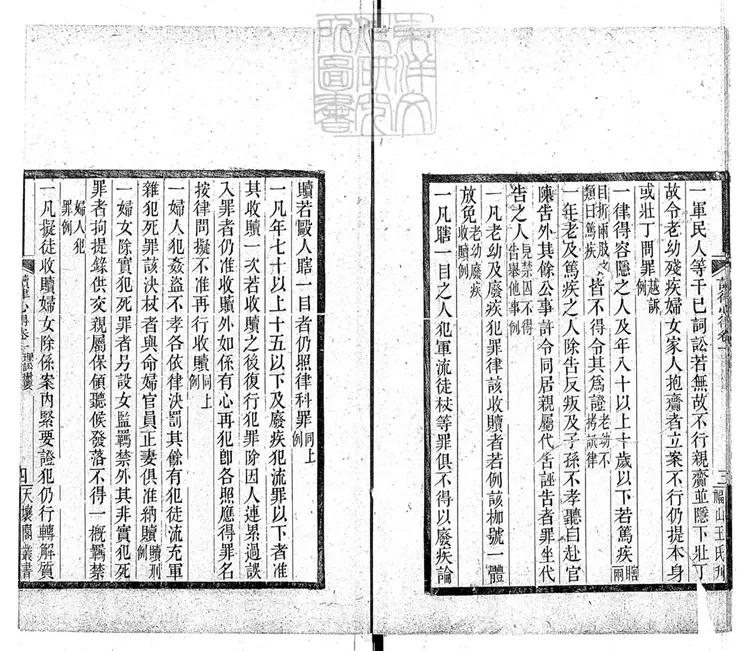 東洋文
化研究
所圖書
一軍民人等干己詞訟若無故不行親齎並隱下壯丁
故令老幼殘疾婦女家人抱齎者立案不行仍提本身
或壯丁問罪越訴例
一律得容隱之人及年八十以上十歲以下若篤疾瞎兩
目折兩肢之類曰篤疾皆不得令其爲證老幼不拷訊律
一年老及篤疾之人除告反叛及子孫不孝聽自赴官
陳告外其餘公事許令同居親屬代告誣告者罪坐代
告之人見禁囚不得告舉他事例
一凡老幼及廢疾犯罪律該收贖者若例該枷號一體
放免老幼廢疾收贖例
一凡瞎一目之人犯軍流徒杖等罪俱不得以廢疾論
讀律心得卷一
三
福山王氏刋
贖若毆人瞎一目者仍照律科罪同上例
一凡年七十以上十五以下及廢疾犯流罪以下者准
其收贖一次若收贖之後復行犯罪除因人連累過誤
入罪者仍准收贖外如係有心再犯卽各照應得罪名
按律問擬不准再行收贖同上例
一婦人犯姦盜不孝各依律決罰其餘有犯徒流充軍
雜犯死罪該決杖者與命婦官員正妻俱准納贖贖刑例
一婦女除實犯死罪者另設女監羈禁外其非實犯死
罪者拘提錄供交親屬保領聽候發落不得一概羈禁
婦人犯罪例
一凡擬徒收贖婦女除係案內緊要證犯仍行轉解質
讀律心得卷一
四
天壤閣叢書